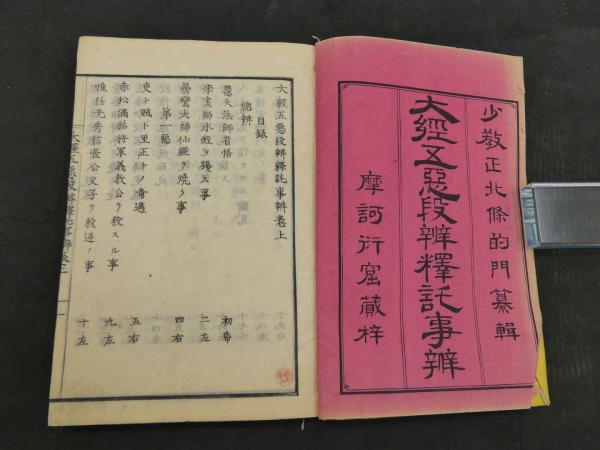 少教正北條的門纂輯
大經五惡段辨釋託事辨
摩訶衍窟藏梓
大經五惡段辨釋託事辨卷上
目録
總辨
慧天法師省悟 初席
李畫師水蛭ヲ殘ス事 二左
曇鸞大師仙經ヲ燒ク事 四右
第一惡
吏士賊千里正トノ奇遇 五右
赤松滿祐將軍義教公ヲ殺スル事 九左
惟任光秀信長公父子ヲ殺逆ノ事 十一左
大經五惡段辨釋託事辨卷上